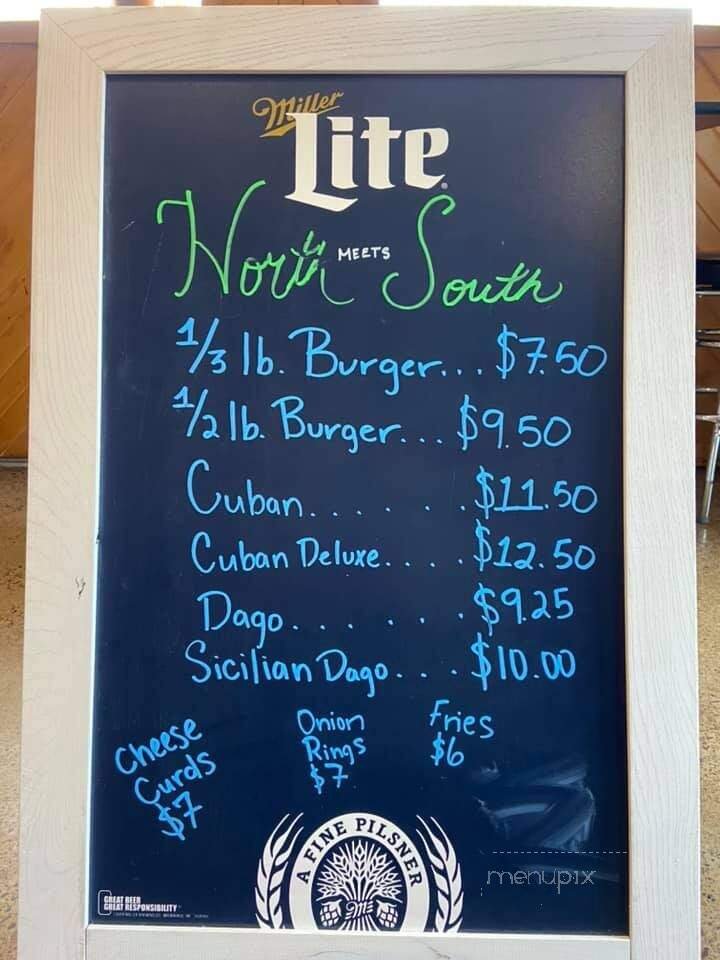 Miller
Lite
North MEETS South
1/3 lb. Burger... $7.50
1/2 lb. Burger... $9.50
Cuban....... $11.50
Cuban Deluxe.... $12.50
Dago....... $9.25
Sicilian Dago.... $10.00
Cheese
Curds
$7
Onion
Rings
$7
Fries
$6
A FINE PILSNER
GREAT BEER
GREAT RESPONSIBILITY
menupix